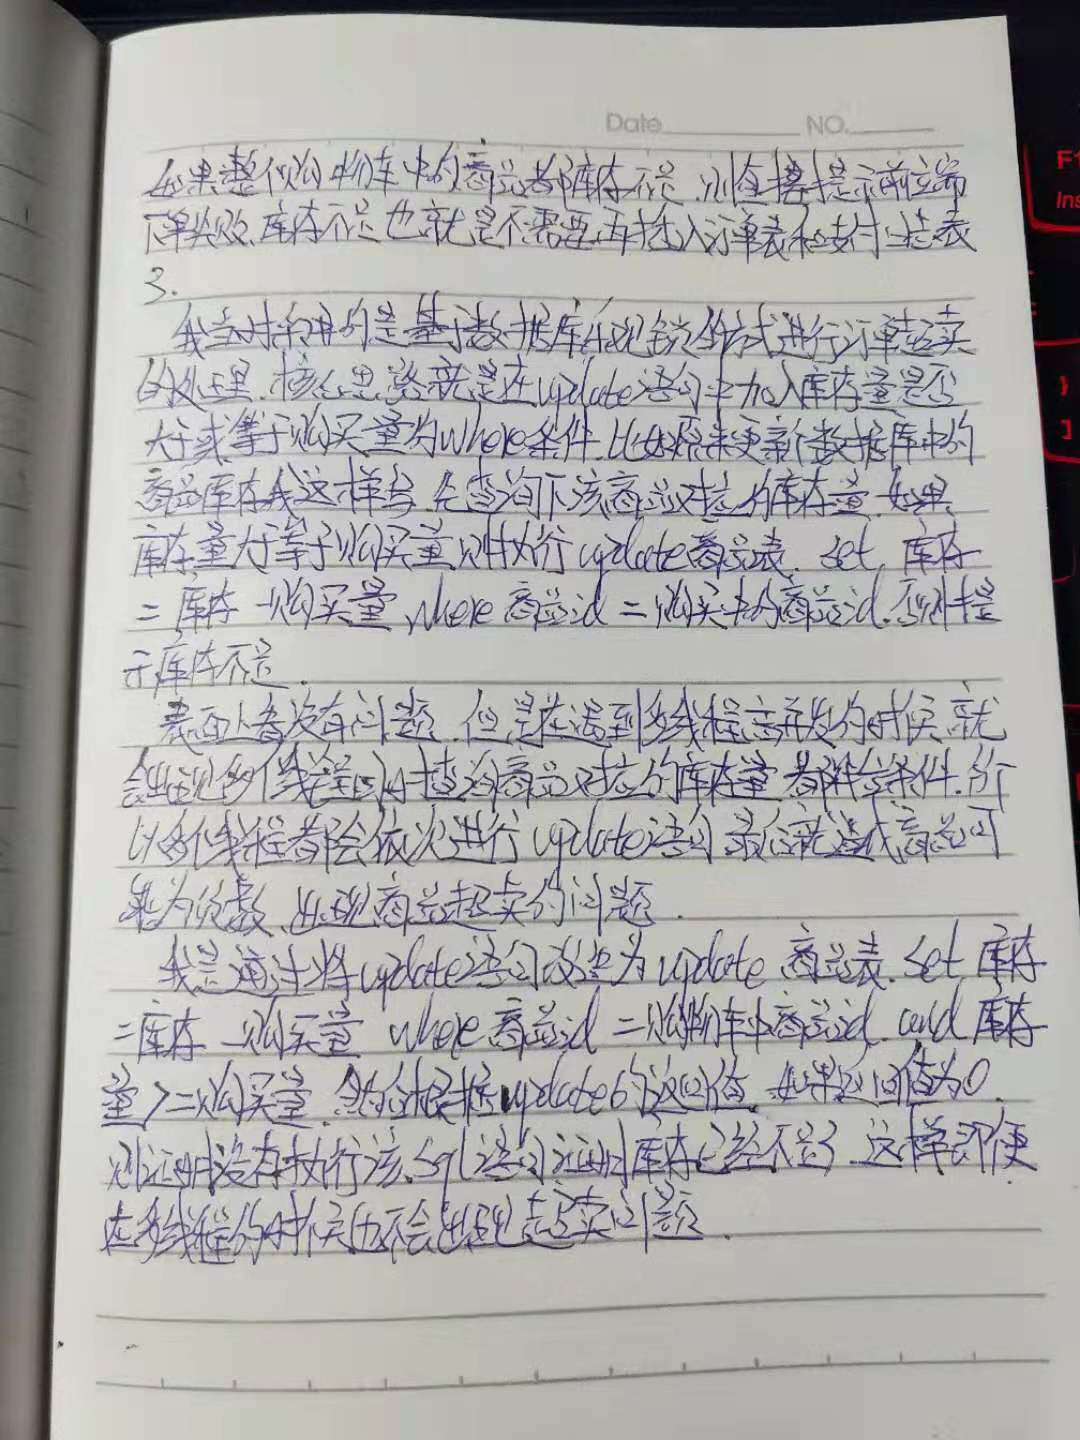 Date NO.
如果整个购物车中的商品都库存不足.则直接提示前端
下单失败.库存不足也就是不需要再插入订单表和支付上表
3.
我当时采用的是基于数据库乐观锁的方式进行订单超卖
的处理.核心思路就是在update语句中加入库存量是否
大于或等于购买量为where条件.比如原来更新数据库中的
商品库存我这样写.先查询下该商品对应的库存量.如果
库存量大于等于购买量则执行update商品表.set 库存
=库存-购买量,where商品id=购买中的商品id.否则提
示库存不足.
表面上看没有问题.但是在遇到多线程高并发的时候就
会出现多个线程同时查询商品对应的库存量都符合条件.所
以多个线程都会依次进行update语句最后就造成商品可
能为负数.出现商品超卖的问题.
我是通过将update语句改进为update商品表.set库存
=库存-购买量 where商品id=购物车中商品id.and库存
量>=购买量.然后根据update的返回值.如果返回值为0.
则证明没有执行该.sql语句证明库存已经不足了.这样即便
在多线程的时候也不会出现超卖问题.
F1
Ins
}
]